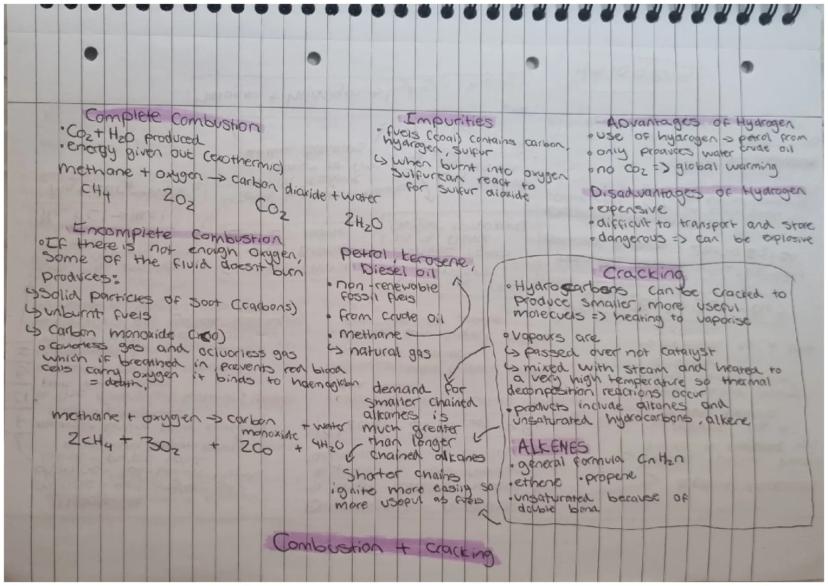 Complete Combustion
• CO2 + H2O produced
• energy given out (exothermic)
methane + oxygen → carbon dioxide + water
CH4 2O2 CO2 2H2O
Incomplete Combustion
• If there is not enough oxygen,
some of the fluid doesnt burn
Produces:
↳ Solid particles of soot (carbons)
↳ unburnt fuels
↳ Carbon monoxide
gas and gas
which if breathed in prevents red blood
cells carry oxygen it binds to
= death.
methane + oxygen → carbon monoxide + water
2CH4 + 3O2 + 2CO + 4H2O
Impurities
• fuels (coal) contains carbon,
hydrogen, sulfur
↳ when burnt into oxygen
sulfur can react to
for sulfur dioxide
Petrol, kerosene,
Diesel oil
• non-renewable
fossil fuels
• from crude oil
• methane
↳ natural gas
demand for
smaller chained
alkanes is
much greater
than longer
chained alkanes
Shorter chains
ignite more easily so
more useful as fuels
Advantages of Hydrogen
• use of hydrogen → petrol from
crude oil
• only produces water
• no CO2 => global warming
Disadvantages of Hydrogen
• expensive
• difficult to transport and store
• dangerous => can be explosive
Cracking
• Hydrocarbons can be cracked to
produce smaller, more useful
molecuels => heating to vaporise
• vapours are
↳ passed over hot catalyst
↳ mixed with steam and heated to
a very high temperature so thermal
decomposition reactions occur
• products include alkanes and
unsaturated hydrocarbons, alkene
ALKENES
• general formula CnH2n
• ethene • propene
• unsaturated because of
double bond
Combustion + Cracking